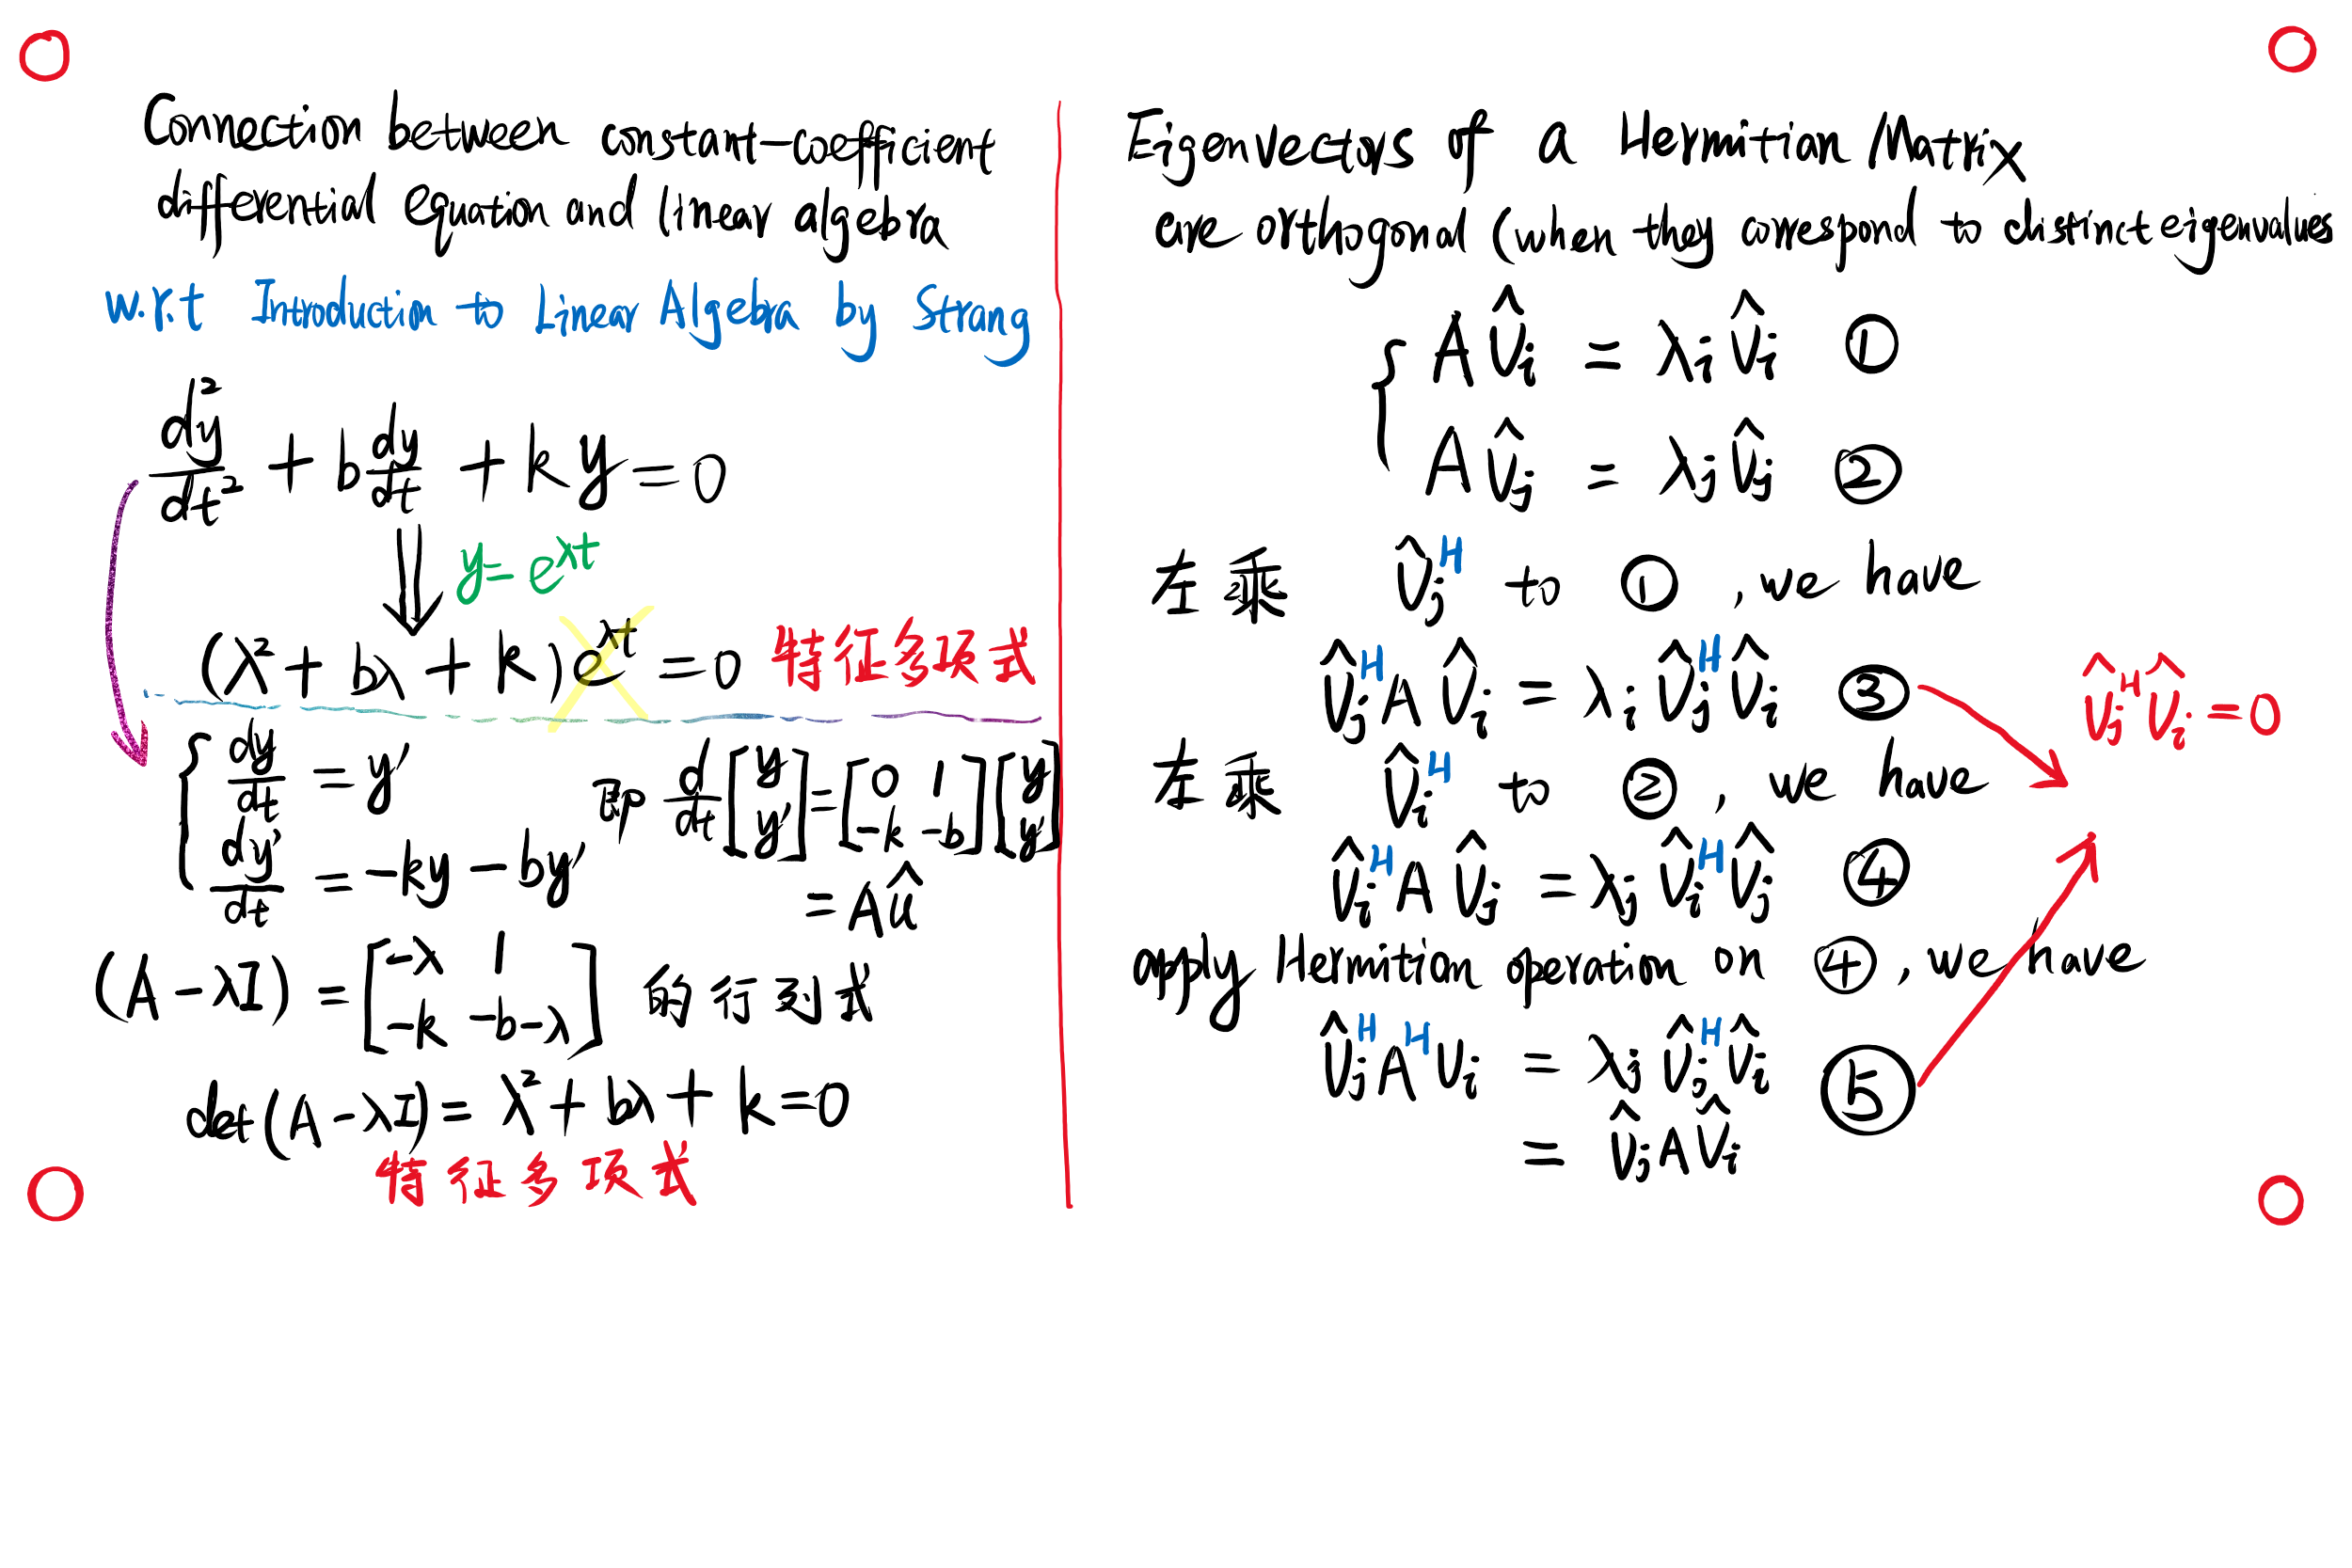 Connection between constant-coefficient
differential equation and linear algebra
w.r.t Introduction to Linear Algebra by Strang
d²y/dt² + b dy/dt + ky = 0
y = e^λt
(λ² + bλ + k) e^λt = 0 特征多项式
{ dy/dt = y'
dy'/dt = -ky - by'
即 d/dt [y y'] = [0 1 -k -b] [y y']
= Aû
(A - λI) = [-λ 1 -k -b-λ] 的行列式
det(A - λI) = λ² + bλ + k = 0
特征多项式
Eigenvectors of a Hermitian Matrix
are orthogonal (when they correspond to distinct eigenvalues
{ A v̂i = λi v̂i ①
A v̂j = λj v̂j ②
左乘 v̂j^H to ① , we have
v̂j^H A v̂i = λi v̂j^H v̂i ③
v̂j^H v̂i = 0
左乘 v̂i^H to ② , we have
v̂i^H A v̂j = λj v̂i^H v̂j ④
apply Hermition operation on ④ , we have
v̂j^H A^H vi = λj v̂j^H v̂i ⑤
= v̂j A v̂i